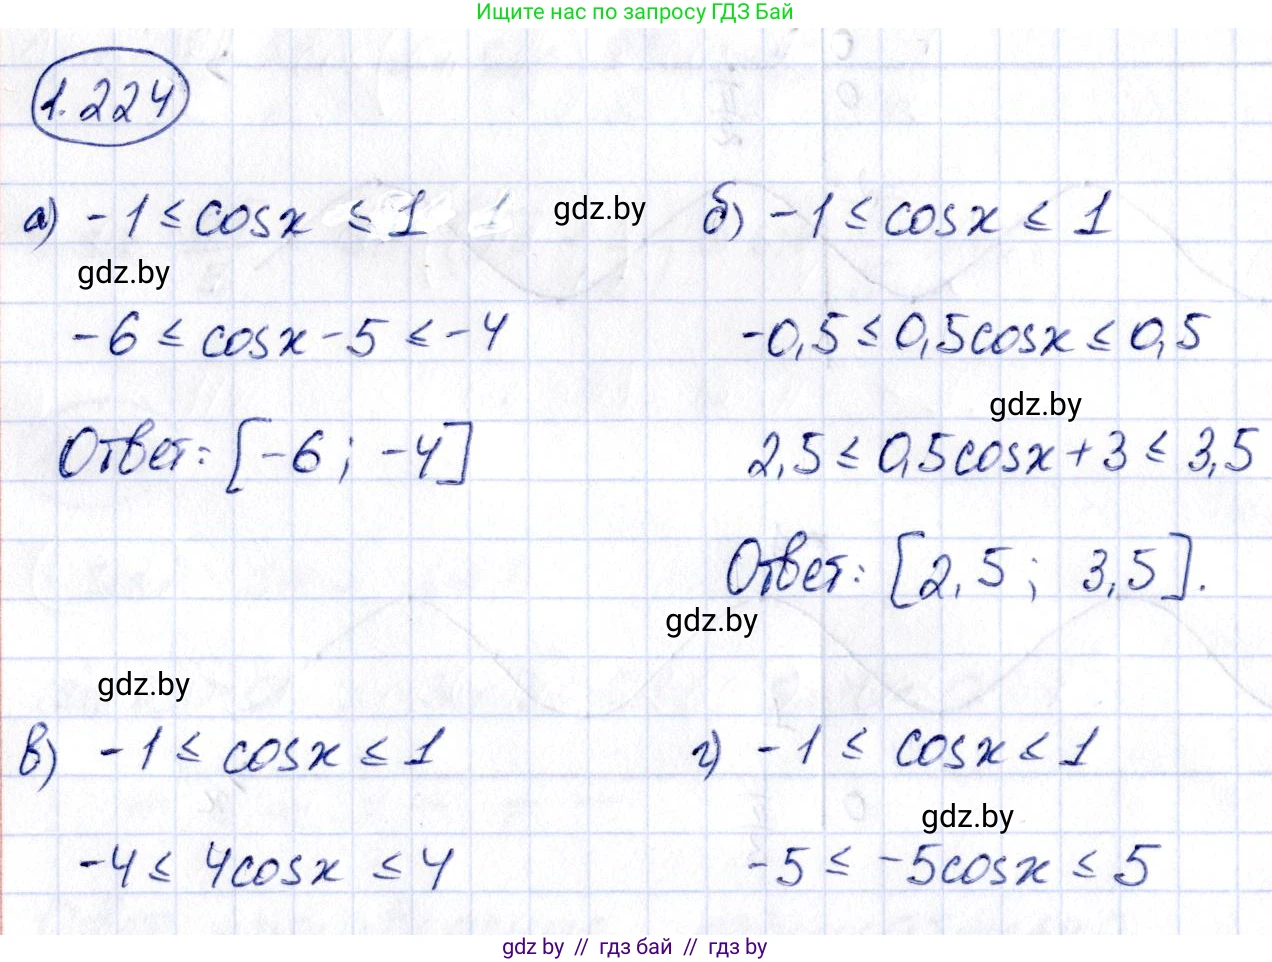 Ищите нас по запросу ГДЗ Бай
1.224
а) -1 ≤ cosx ≤ 1
gdz.by
-6 ≤ cosx - 5 ≤ -4
Ответ: [-6; -4]
gdz.by
б) -1 ≤ cosx ≤ 1
-0,5 ≤ 0,5cosx ≤ 0,5
gdz.by
2,5 ≤ 0,5cosx + 3 ≤ 3,5
Ответ: [2,5; 3,5].
gdz.by
gdz.by
в) -1 ≤ cosx ≤ 1
-4 ≤ 4cosx ≤ 4
г) -1 ≤ cosx ≤ 1
gdz.by
-5 ≤ -5cosx ≤ 5
gdz by // гдз бай // гдз by